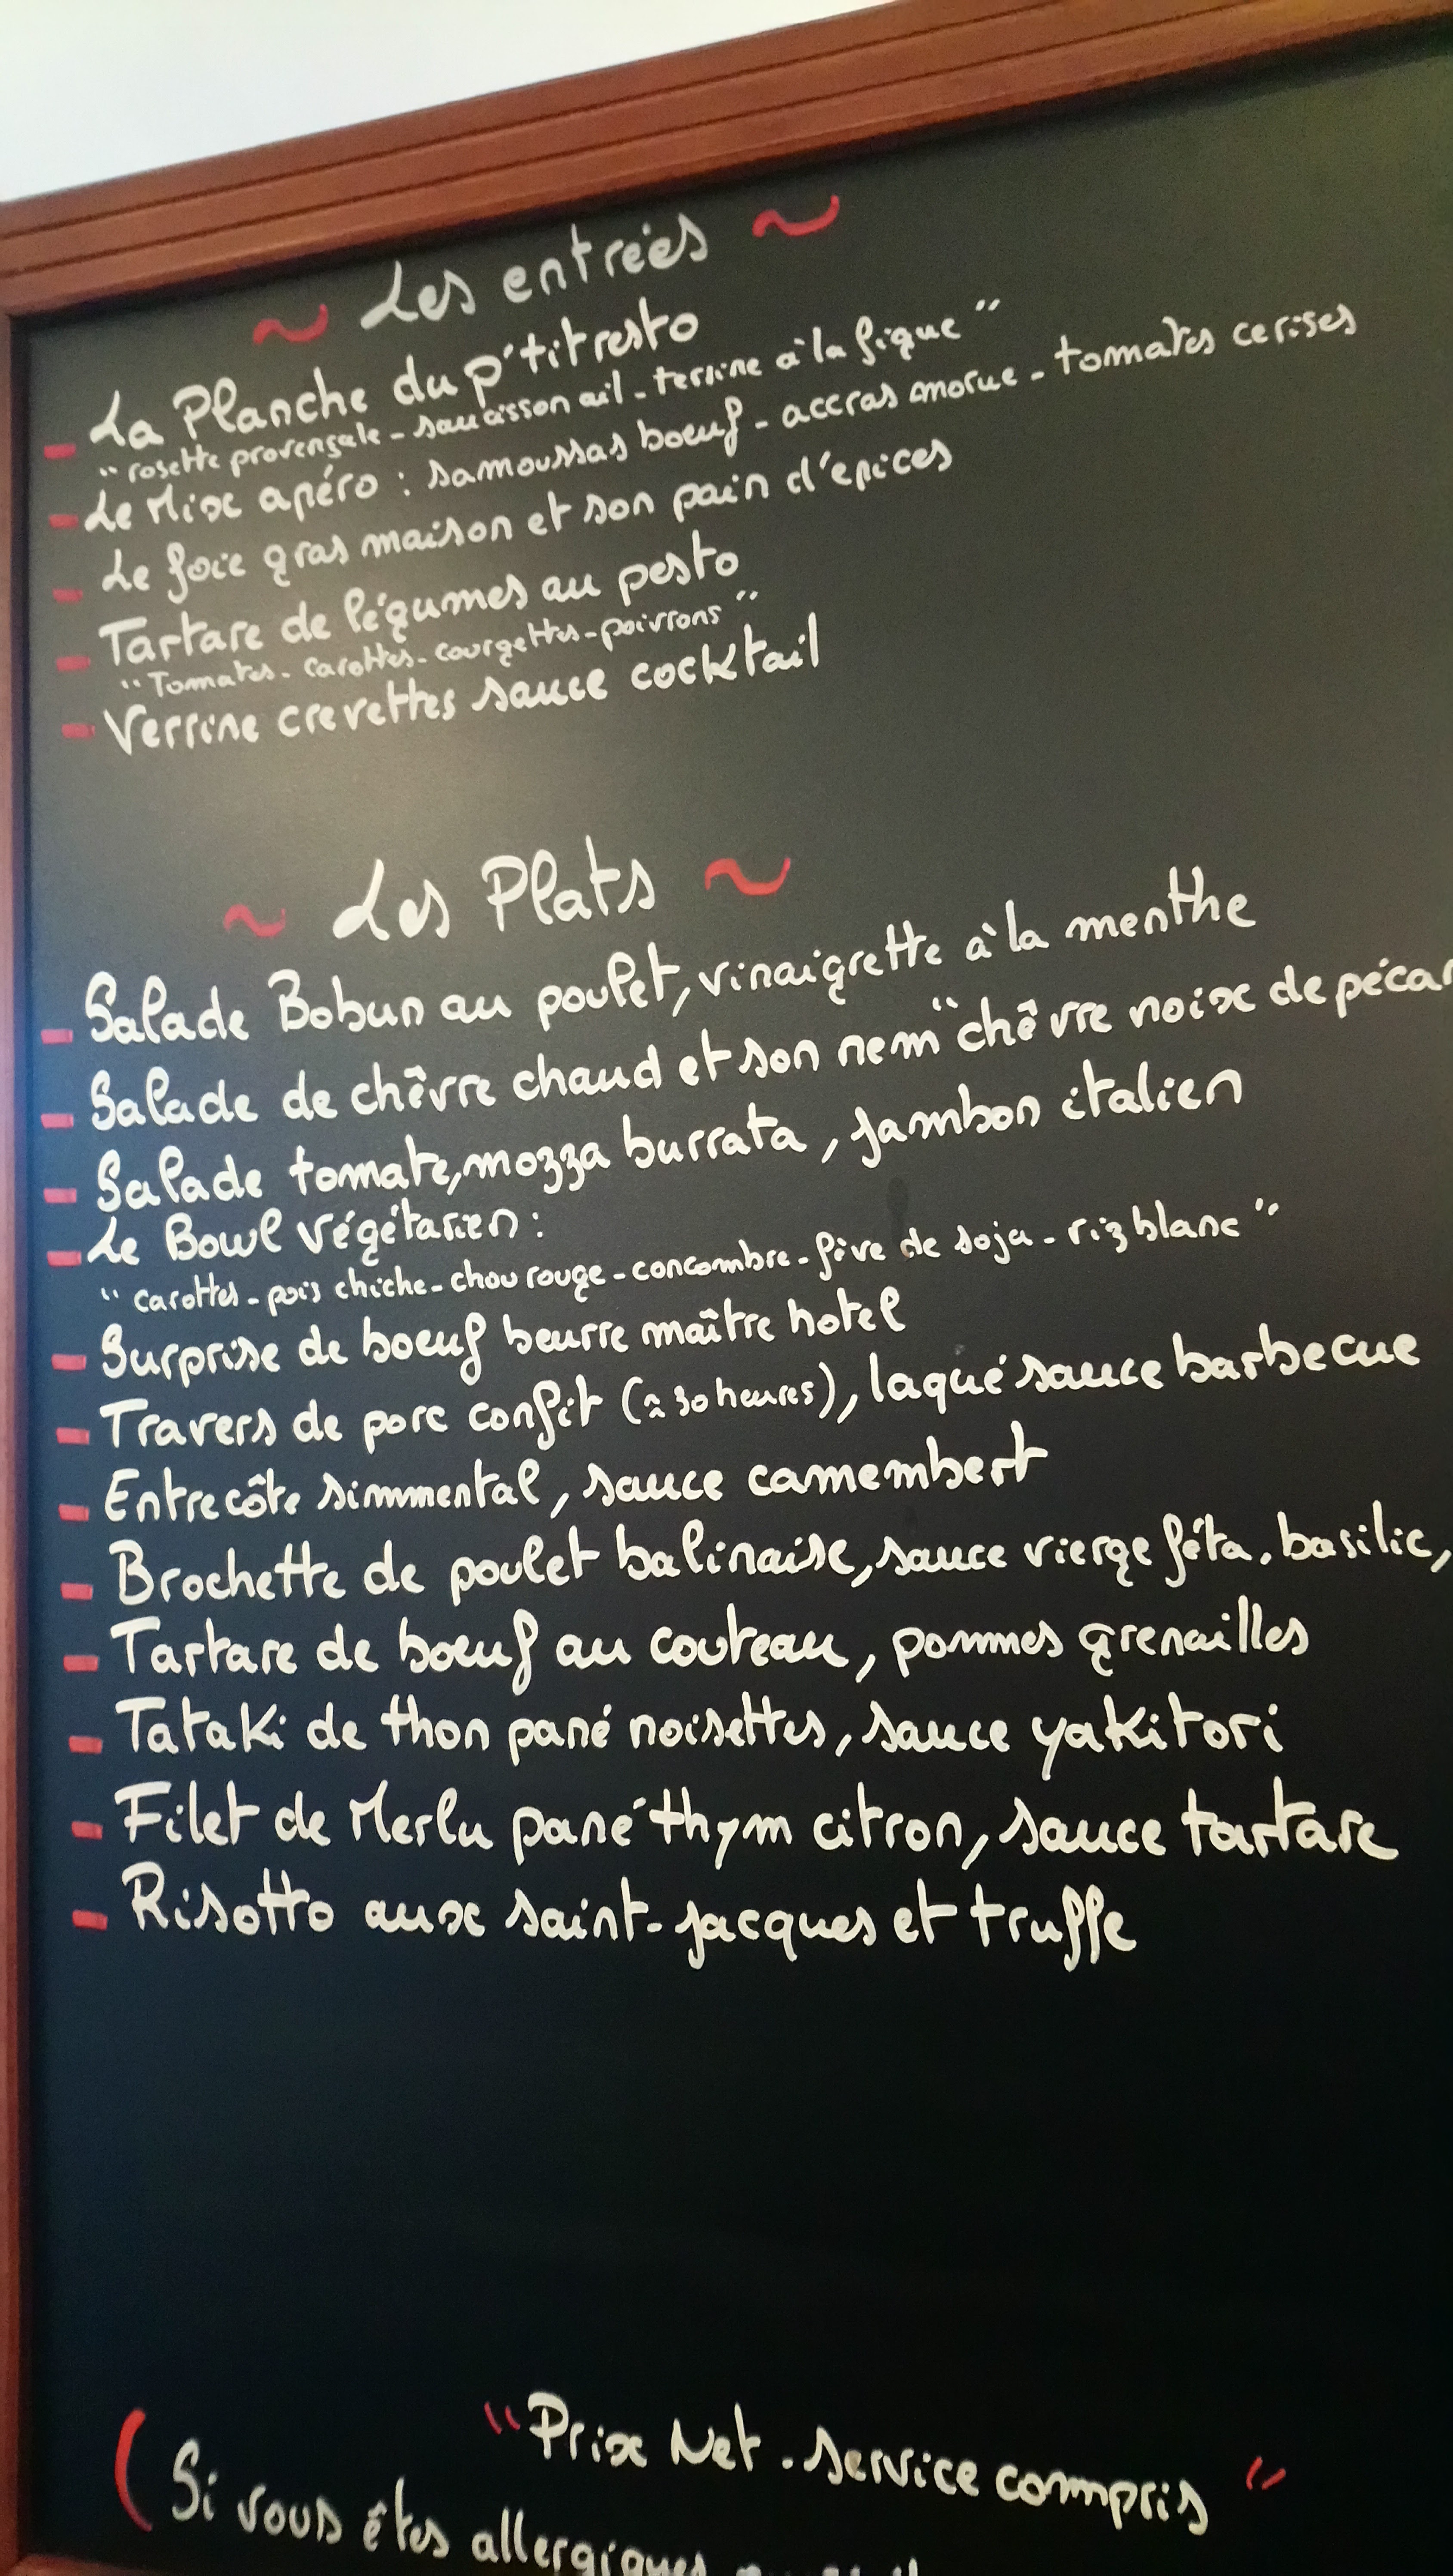 ~ Les entrées ~
- La Planche du p'tit resto
"rosette provençale - saucisson ail - terrine à la figue"
- Le Mix apéro : samoussas boeuf - accras morue - tomates cerises
- Le foie gras maison et son pain d'épices
- Tartare de légumes au pesto
"Tomates - carottes - courgettes - poivrons"
- Verrine crevettes sauce cocktail
~ Les Plats ~
- Salade Bobun au poulet, vinaigrette à la menthe
- Salade de chêvre chaud et son nem "chêvre noix de pécan
- Salade tomate, mozza burrata, jambon italien
- Le Bowl végétarien :
"carottes - pois chiche - chou rouge - concombre - fêve de soja - riz blanc"
- Surprise de boeuf beurre maître hotel
- Travers de porc confit (≈ 30 heures), laqué sauce barbecue
- Entrecôte simmental, sauce camembert
- Brochette de poulet balinaise, sauce vierge féta, basilic,
- Tartare de boeuf au couteau, pommes grenailles
- Tataki de thon pané noisettes, sauce yakitori
- Filet de Merlu pané thym citron, sauce tartare
- Risotto aux saint-jacques et truffe
"Prix Net - service compris"
(Si vous êtes allergiques